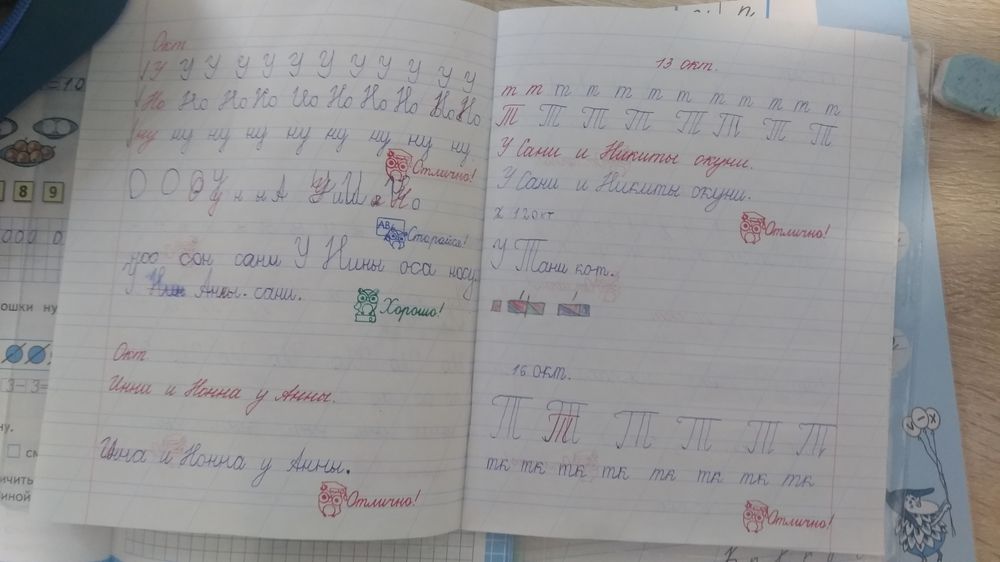 Окт
У У У У У У У У У У У
Но Но Но Но Ио Но Но Но Но Но
ну ну ну ну ну ну ну ну ну
Отлично!
О О О У н н А У и Ш а Н о
АБ Старайся!
сон сани У Нины оса
У Анны. сани.
Хорошо!
Окт
Инна и Нонна у Анны.
Инна и Нонна у Анны.
Отлично!
13 окт.
т т т т т т т т т т т т
Т Т Т Т Т Т Т Т
У Сани и Никиты окуни.
У Сани и Никиты окуни.
х 12 окт
Отлично!
У Тани кот.
16 окт.
Т Т Т Т Т Т
тк тк тк тк тк тк тк тк
Отлично!
8 9
3-3=